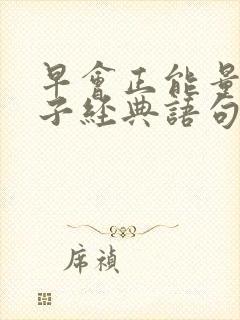 早會正能量
子經典語句
席禎